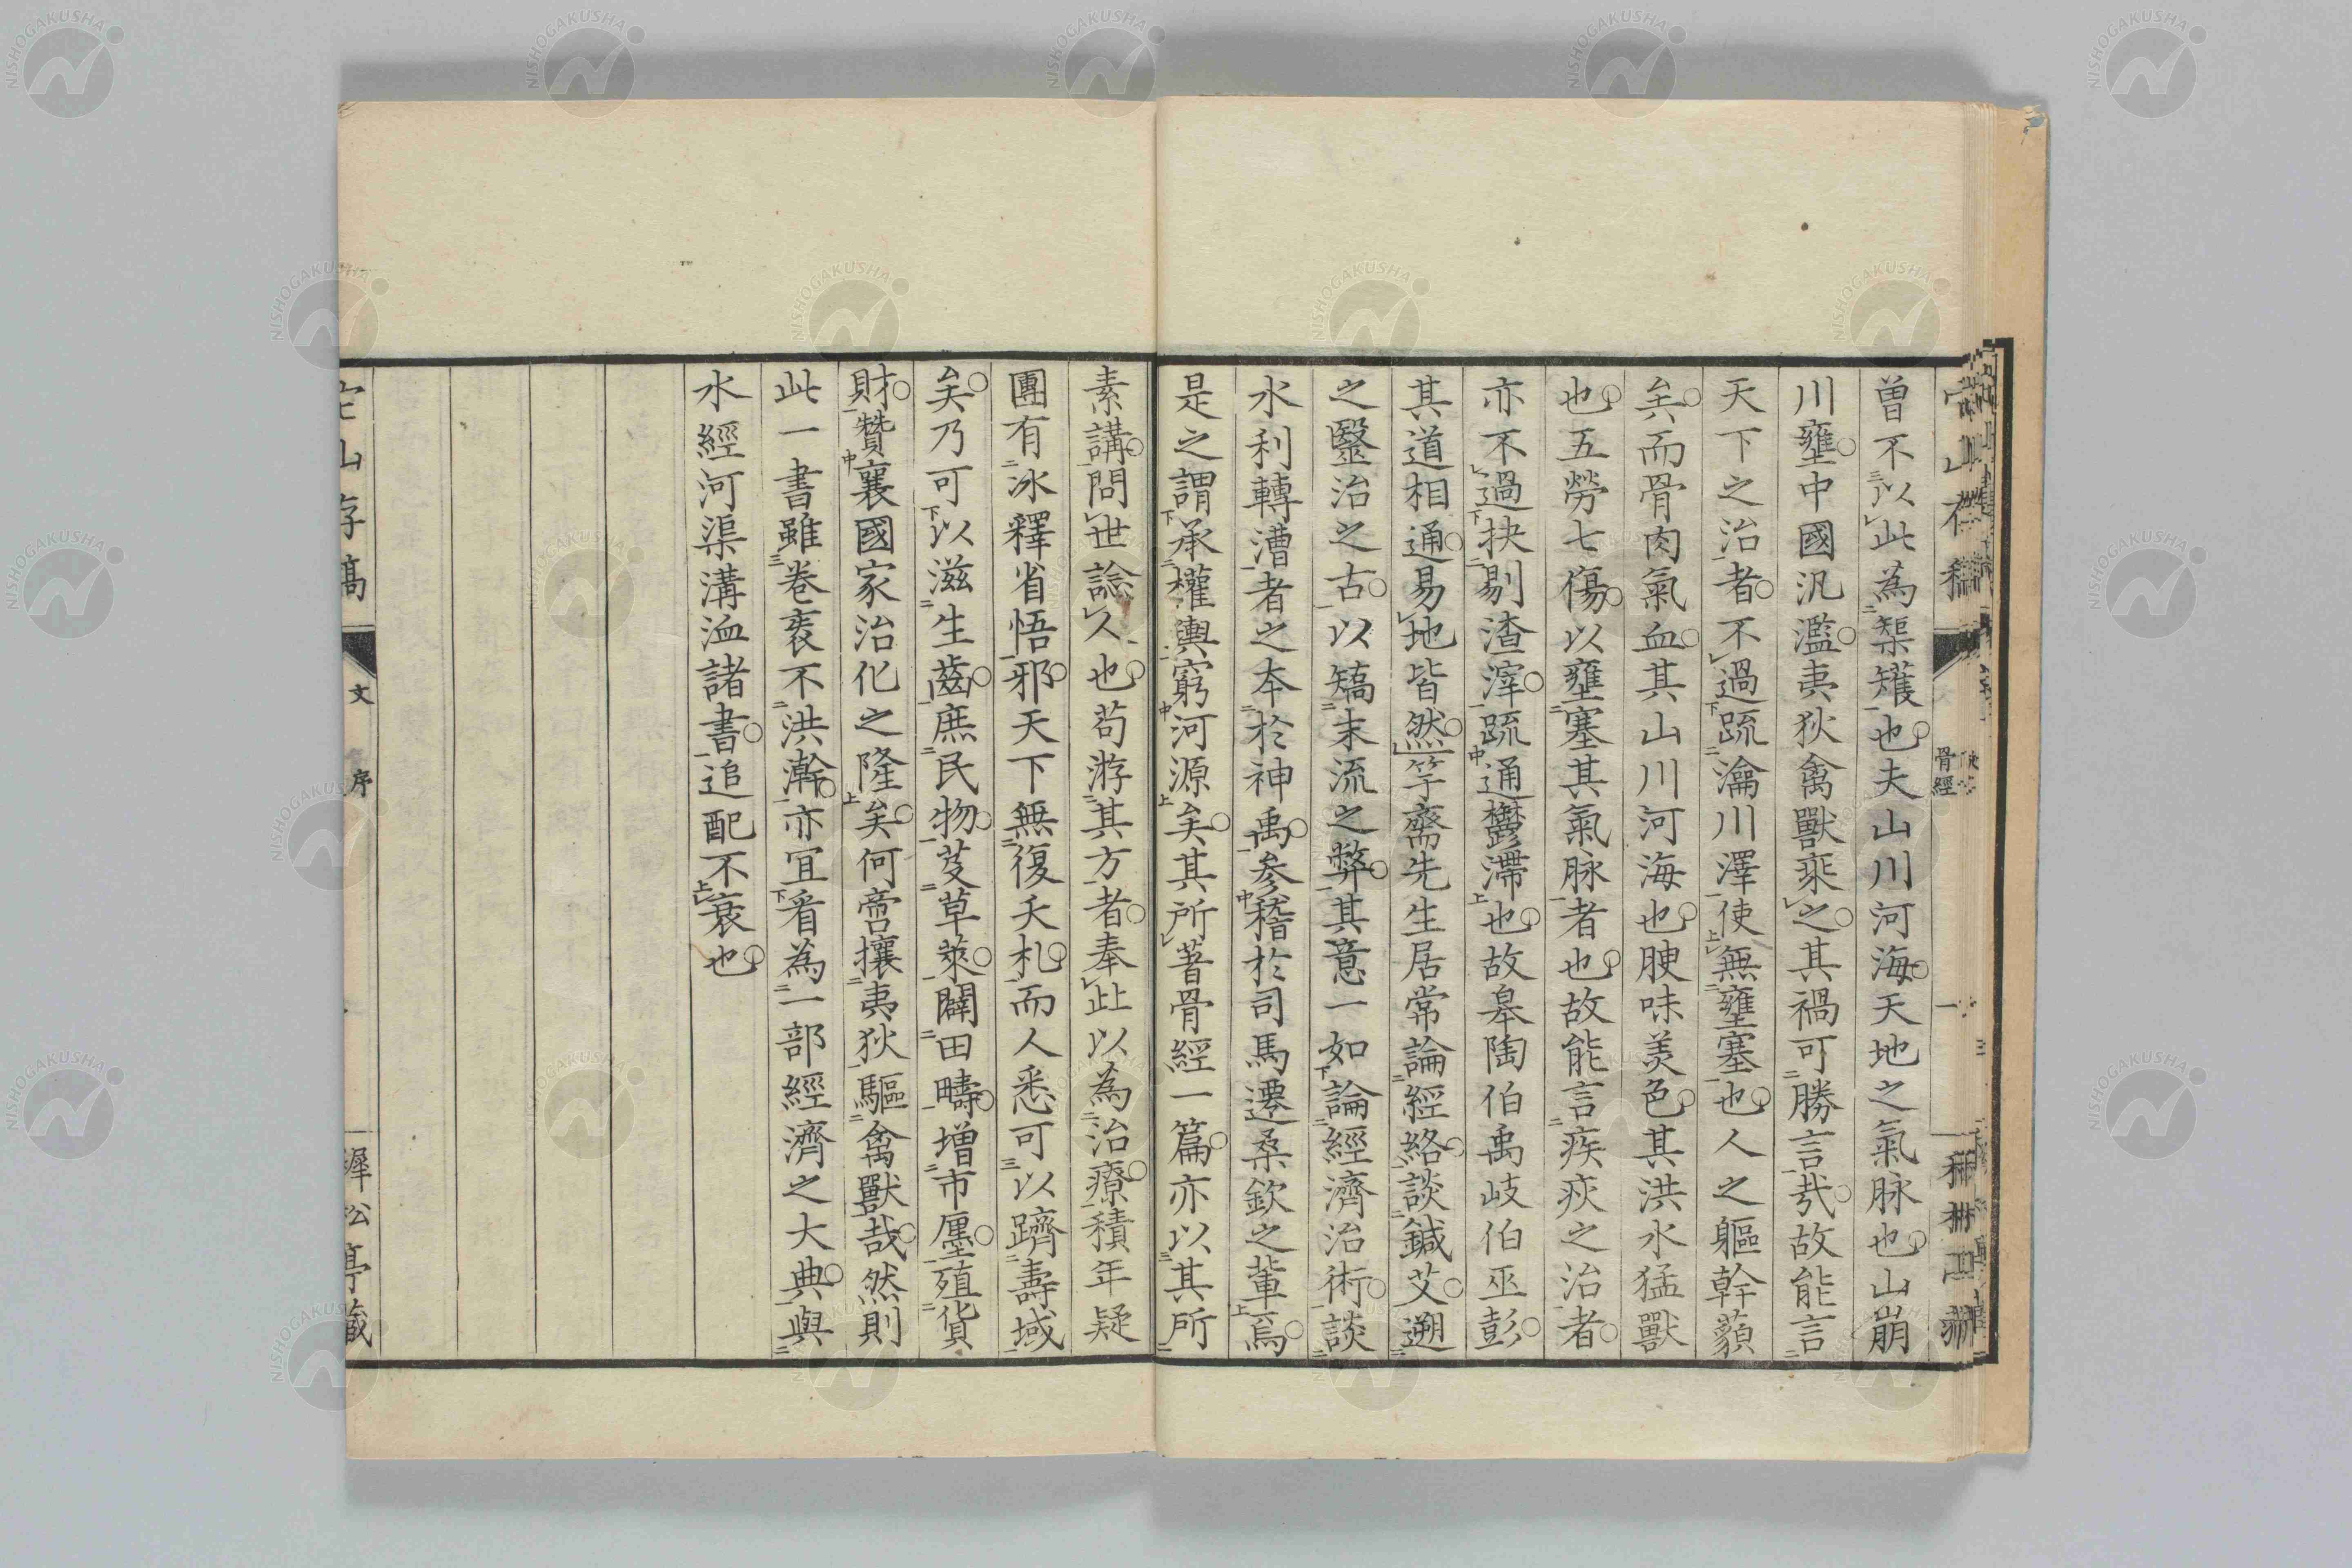 曽不以此為榘矱也夫山川河海天地之氣脉也山崩
川壅中國汎濫夷狄禽獸乘之其禍可勝言哉故能言
天下之治者不過疏瀹川澤使無壅塞也人之軀幹藐
矣而骨肉氣血其山川河海也腴味美色其洪水猛獸
也五勞七傷以壅塞其氣脉者也故能言疾疢之治者
亦不過抉剔渣滓疏通鬱滯也故皋陶伯禹岐伯巫彭
其道相通易地皆然竽齋先生居常論經絡談鍼艾遡
之毉治之古以矯末流之弊其意一如論經濟治術談
水利轉漕者之本於神禹參稽於司馬遷桑欽之輩焉
是之謂承權輿窮河源矣其所著骨經一篇亦以其所
素講問世諗久也苟游其方者奉此以為治療積年疑
團有冰釋省悟邪天下無復夭札而人悉可以躋壽域
矣乃可以滋生齒庶民物芟草萊闢田疇增市廛殖貨
財贊襄國家治化之隆矣何啻攘夷狄驅禽獸哉然則
此一書雖卷袠不洪瀚亦宜看為一部經濟之大典與
水經河渠溝洫諸書追配不衰也
宕山存稿
文
序
墀松亭藏
骨經
NISHOGAKUSHA